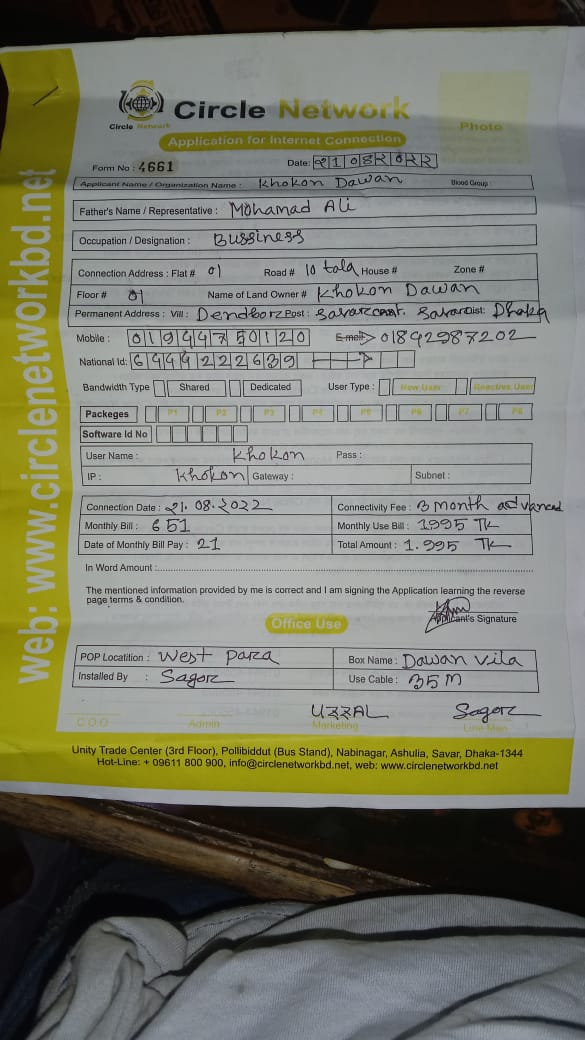 web: www.circlenetworkbd.net
Circle Network
Circle Network
Photo
Application for Internet Connection
Form No : 4661
Date: ২১ ০৪ ২০২২
Applicant Name / Organization Name : Khokon Dawan Blood Group :
Father's Name / Representative : Mohamad Ali
Occupation / Designation : Bussiness
Connection Address : Flat # 01 Road # 10 tala House # Zone #
Floor # 01 Name of Land Owner # Khokon Dawan
Permanent Address : Vill : Post : Savar Dist: Dhaka
Mobile : 01944750120 E-mail 01892987202
National Id: 6444222639
Bandwidth Type Shared Dedicated User Type : New User Reactive User
Packeges P1 P2 P3 P4 P5 P6 P7 P8
Software Id No
User Name : Khokon Pass :
IP : Khokon Gateway : Subnet :
Connection Date : 21.08.2022 Connectivity Fee : 3 month advanced
Monthly Bill : 651 Monthly Use Bill : 1995 TK
Date of Monthly Bill Pay : 21 Total Amount : 1.995 TK
In Word Amount :
The mentioned information provided by me is correct and I am signing the Application learning the reverse
page terms & condition.
Applicant's Signature
Office Use
POP Locatition : West Para Box Name : Dawan Vila
Installed By : Sagor Use Cable : 35M
Sagor
C O O Admin Marketing Line Man
Unity Trade Center (3rd Floor), Pollibiddut (Bus Stand), Nabinagar, Ashulia, Savar, Dhaka-1344
Hot-Line: + 09611 800 900, info@circlenetworkbd.net, web: www.circlenetworkbd.net